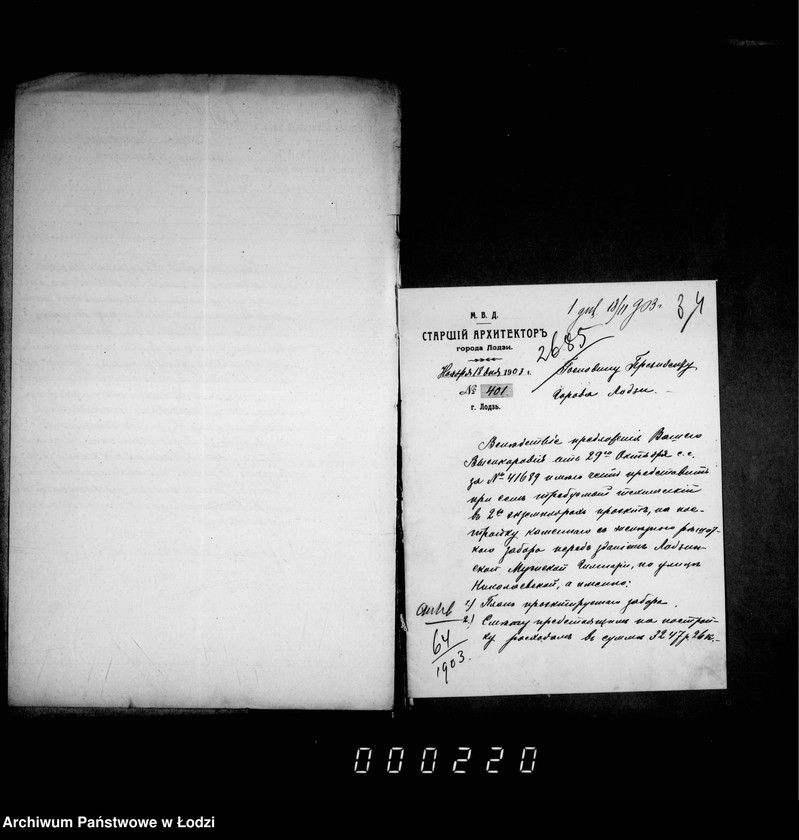 1 дек 18/11 903 г 34
М. В. Д.
СТАРШІЙ АРХИТЕКТОРЪ
города Лодзи.
2685
Ноября 18 дня 1903 г.
№ 401
г. Лодзь.
Господину Президенту
Города Лодзи.
Вслѣдствіе предложенія Вашего
Высокородія отъ 29го Октября с.г.
за № 41689 имѣю честь представить
при семъ требуемый техническій
въ 2хъ экземплярахъ проектъ, на пос-
тройку каменнаго съ желѣзною рѣшот-
кого забора передъ зданіемъ Лодзин-
ской Мужской Гимназіи, по улицѣ
Николаевской, а именно:
1) Планъ проектируемаго забора.
2) Смѣту предстоящимъ на построй-
ку расходамъ въ суммѣ 3247 р. 26 к.
64
1903.
000220
Archiwum Państwowe w Łodzi